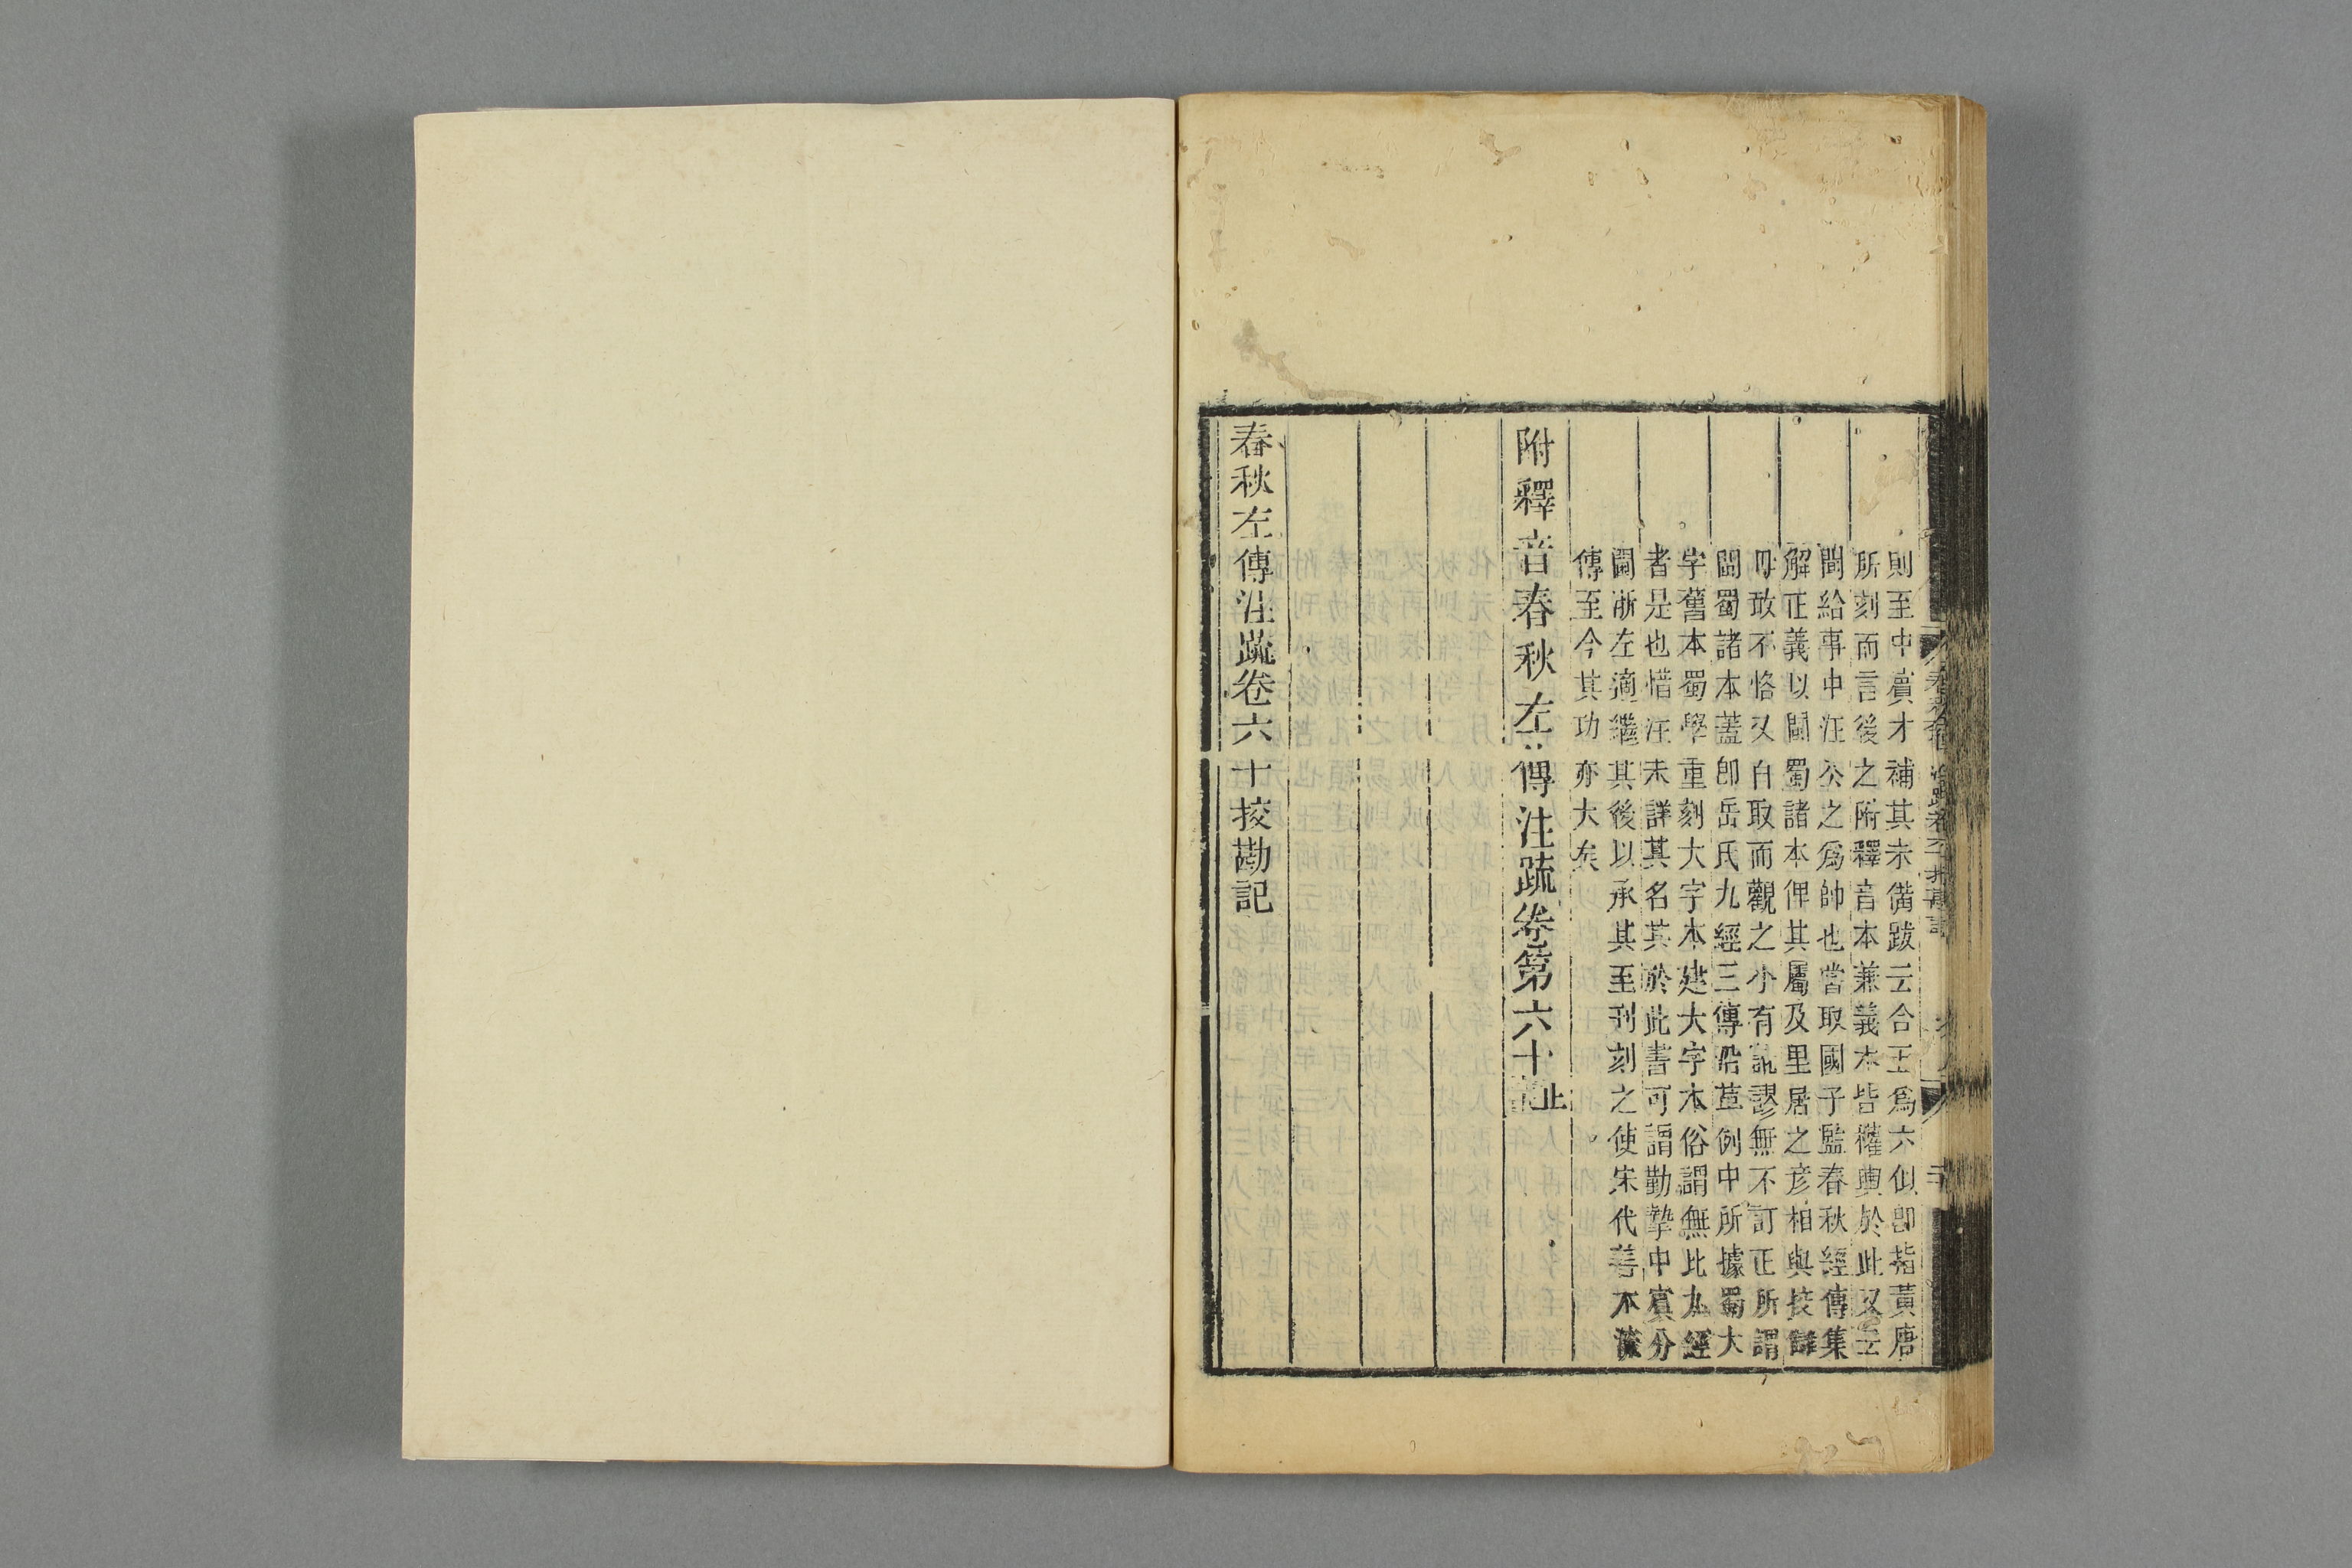 則至中賔才補其未備跋云合五爲六似卽指黃唐
所刻而言後之附釋音本兼義本皆權輿於此又云
間給事中汪公之爲帥也嘗取國子監春秋經傳集
解正義以閩蜀諸本俾其屬及里居之彦相與挍讎
毋敢不恪又自取而觀之小有訛謬無不訂正所謂
閩蜀諸本蓋卽岳氏九經三傳㳂革例中所據蜀大
字舊本蜀學重刻大字本建大字本俗謂無比九經
者是也惜汪未詳其名其於此書可謂勤摯中賔分
閫浙左適繼其後以承其至刊刻之使宋代善本流
傳至今其功亦大矣
附釋音春秋左傳注疏卷第六十止
春秋左傳注疏卷六十挍勘記